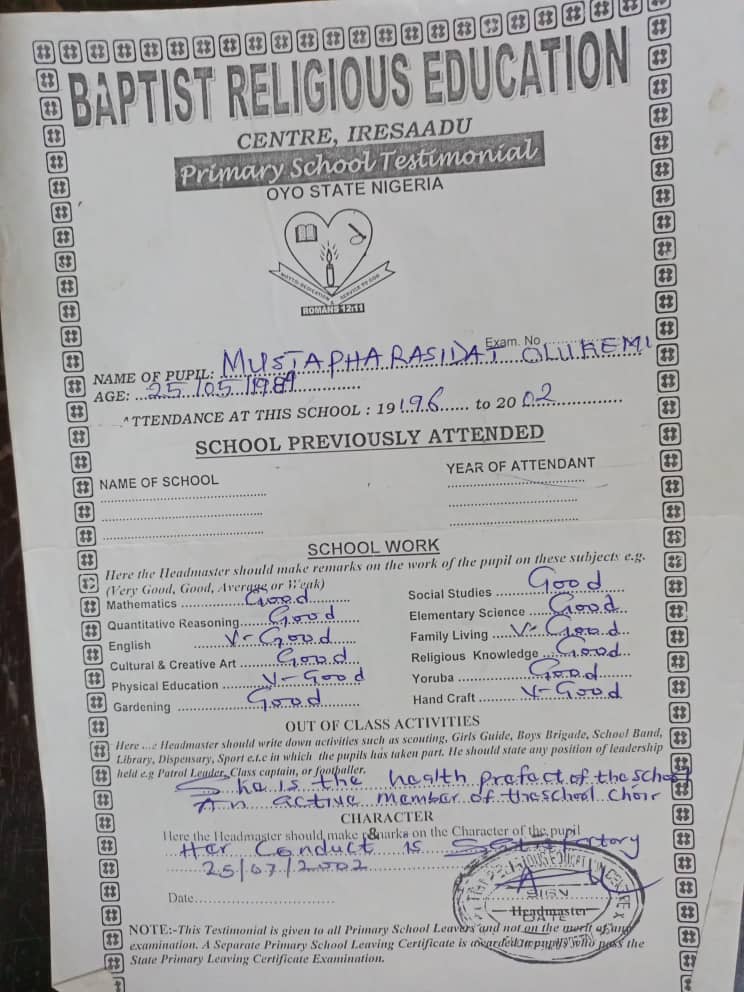 BAPTIST RELIGIOUS EDUCATION
CENTRE, IRESAADU
Primary School Testimonial
OYO STATE NIGERIA
MOTTO: DEDICATION & SERVICE TO GOD
ROMANS 12:11
Exam. No
NAME OF PUPIL: MUSTAPHA RASIDAT OLUKEMI
AGE: 25/05/1989
ATTENDANCE AT THIS SCHOOL : 19 196 to 20 02
SCHOOL PREVIOUSLY ATTENDED
NAME OF SCHOOL YEAR OF ATTENDANT
SCHOOL WORK
Here the Headmaster should make remarks on the work of the pupil on these subjects e.g.
(Very Good, Good, Average or Weak)
Mathematics Good
Quantitative Reasoning Good
English V-Good
Cultural & Creative Art Good
Physical Education V-Good
Gardening Good
Social Studies Good
Elementary Science Good
Family Living V-Good
Religious Knowledge Good
Yoruba Good
Hand Craft V-Good
OUT OF CLASS ACTIVITIES
Here Headmaster should write down activities such as scouting, Girls Guide, Boys Brigade, School Band,
Library, Dispensary, Sport e.t.c in which the pupils has taken part. He should state any position of leadership
held e.g Patrol Leader, Class captain, or footballer.
She is the health prefect of the school
An active member of the school choir
CHARACTER
Here the Headmaster should make remarks on the Character of the pupil
Her Conduct is
25/07/2002
Date
SIGN
Headmaster
DATE
NOTE:-This Testimonial is given to all Primary School Leavers and not on the merit of any
examination. A Separate Primary School Leaving Certificate is awarded to pupils who pass the
State Primary Leaving Certificate Examination.